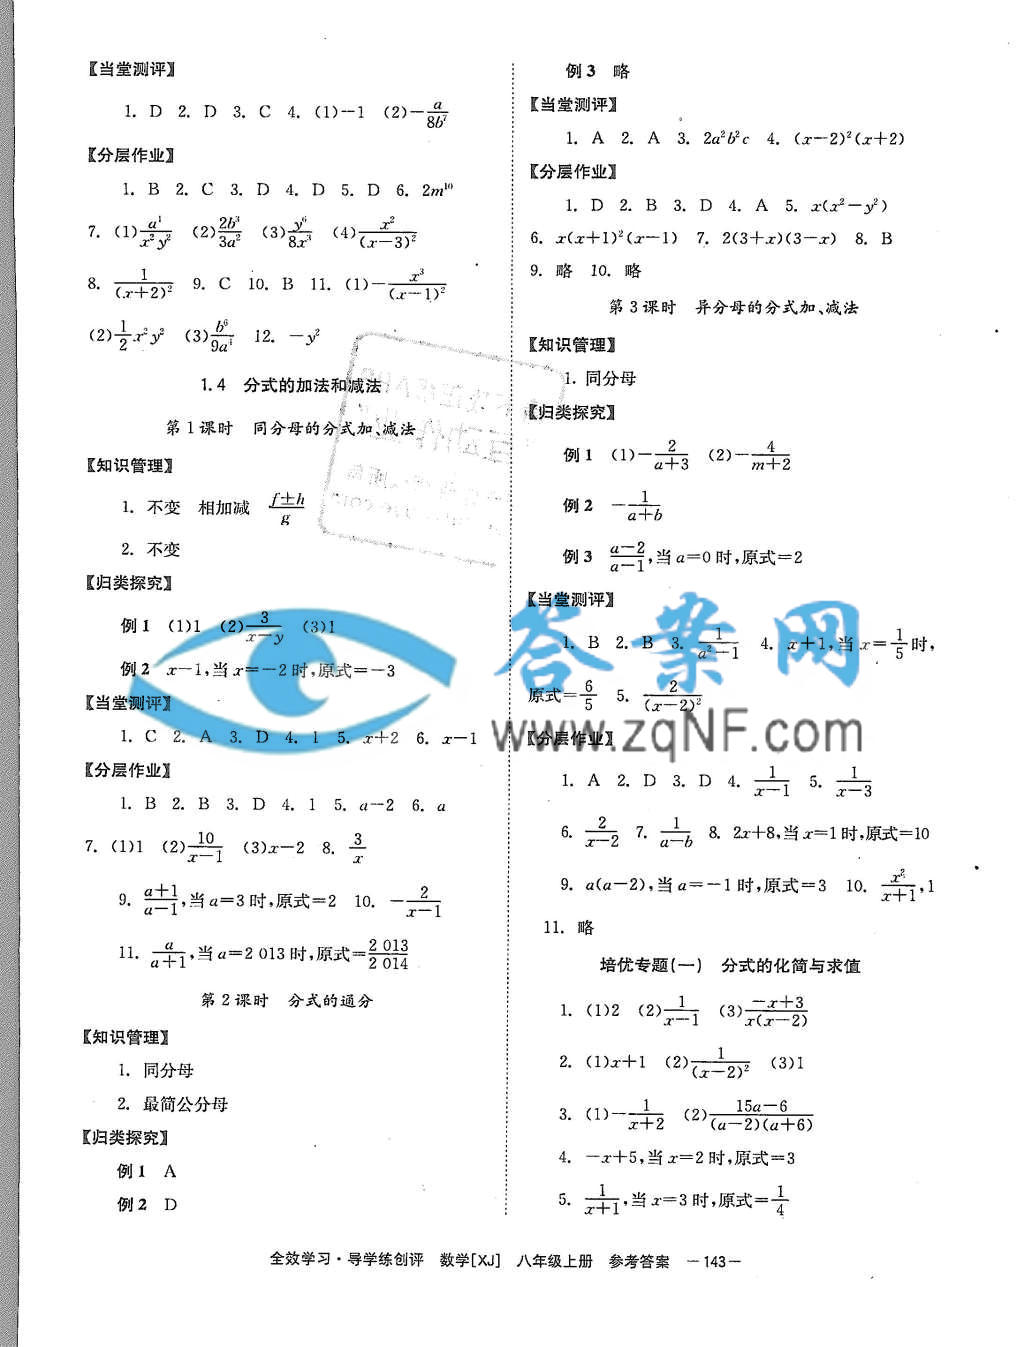 【当堂测评】
1. D 2. D 3. C 4. (1)－1 (2)－a/8b⁷
【分层作业】
1. B 2. C 3. D 4. D 5. D 6. 2m¹⁰
7. (1) a⁴/x²y² (2) 2b³/3a² (3) y⁶/8x³ (4) x²/(x－3)²
8. 1/(x＋2)² 9. C 10. B 11. (1)－x³/(x－1)²
(2) 1/2 x²y² (3) b⁶/9a⁴ 12. －y²
1.4 分式的加法和减法
第1课时 同分母的分式加、减法
【知识管理】
1. 不变 相加减 (f±h)/g
2. 不变
【归类探究】
例1 (1)1 (2) 3/(x－y) (3)1
例2 x－1,当x＝－2时,原式＝－3
【当堂测评】
1. C 2. A 3. D 4. 1 5. x＋2 6. x－1
【分层作业】
1. B 2. B 3. D 4. 1 5. a－2 6. a
7. (1)1 (2) 10/(x－1) (3)x－2 8. 3/x
9. (a＋1)/(a－1),当a＝3时,原式＝2 10. －2/(x－1)
11. a/(a＋1),当a＝2 013时,原式＝2 013/2 014
第2课时 分式的通分
【知识管理】
1. 同分母
2. 最简公分母
【归类探究】
例1 A
例2 D
例3 略
【当堂测评】
1. A 2. A 3. 2a²b²c 4. (x－2)²(x＋2)
【分层作业】
1. D 2. B 3. D 4. A 5. x(x²－y²)
6. x(x＋1)²(x－1) 7. 2(3＋x)(3－x) 8. B
9. 略 10. 略
第3课时 异分母的分式加、减法
【知识管理】
1. 同分母
【归类探究】
例1 (1)－2/(a＋3) (2)－4/(m＋2)
例2 －1/(a＋b)
例3 (a－2)/(a－1),当a＝0时,原式＝2
【当堂测评】
1. B 2. B 3. 1/(a²－1) 4. x＋1,当x＝1/5时,
原式＝6/5 5. 2/(x－2)²
【分层作业】
1. A 2. D 3. D 4. 1/(x－1) 5. 1/(x－3)
6. 2/(x－2) 7. 1/(a－b) 8. 2x＋8,当x＝1时,原式＝10
9. a(a－2),当a＝－1时,原式＝3 10. x²/(x＋1),1
11. 略
培优专题(一) 分式的化简与求值
1. (1)2 (2) 1/(x－1) (3) (－x＋3)/x(x－2)
2. (1)x＋1 (2) 1/(x－2)² (3)1
3. (1)－1/(x＋2) (2) (15a－6)/(a－2)(a＋6)
4. －x＋5,当x＝2时,原式＝3
5. 1/(x＋1),当x＝3时,原式＝1/4
答案网
www.zqNF.com
全效学习·导学练创评 数学[XJ] 八年级上册 参考答案 －143－